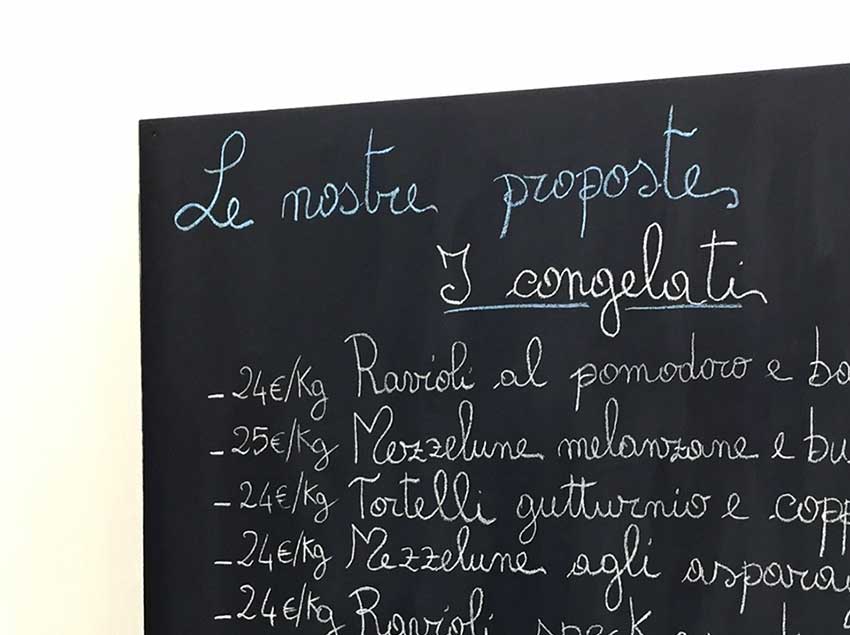 Le nostre proposte
I congelati
- 24€/Kg Ravioli al pomodoro e
- 25€/Kg Mezzelune melanzane e
- 24€/Kg Tortelli gutturnio e
- 24€/Kg Mezzelune agli
- 24€/Kg Ravioli speck